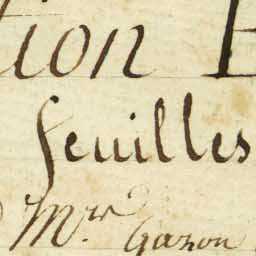 tion
feuilles
Mrs. Gazon